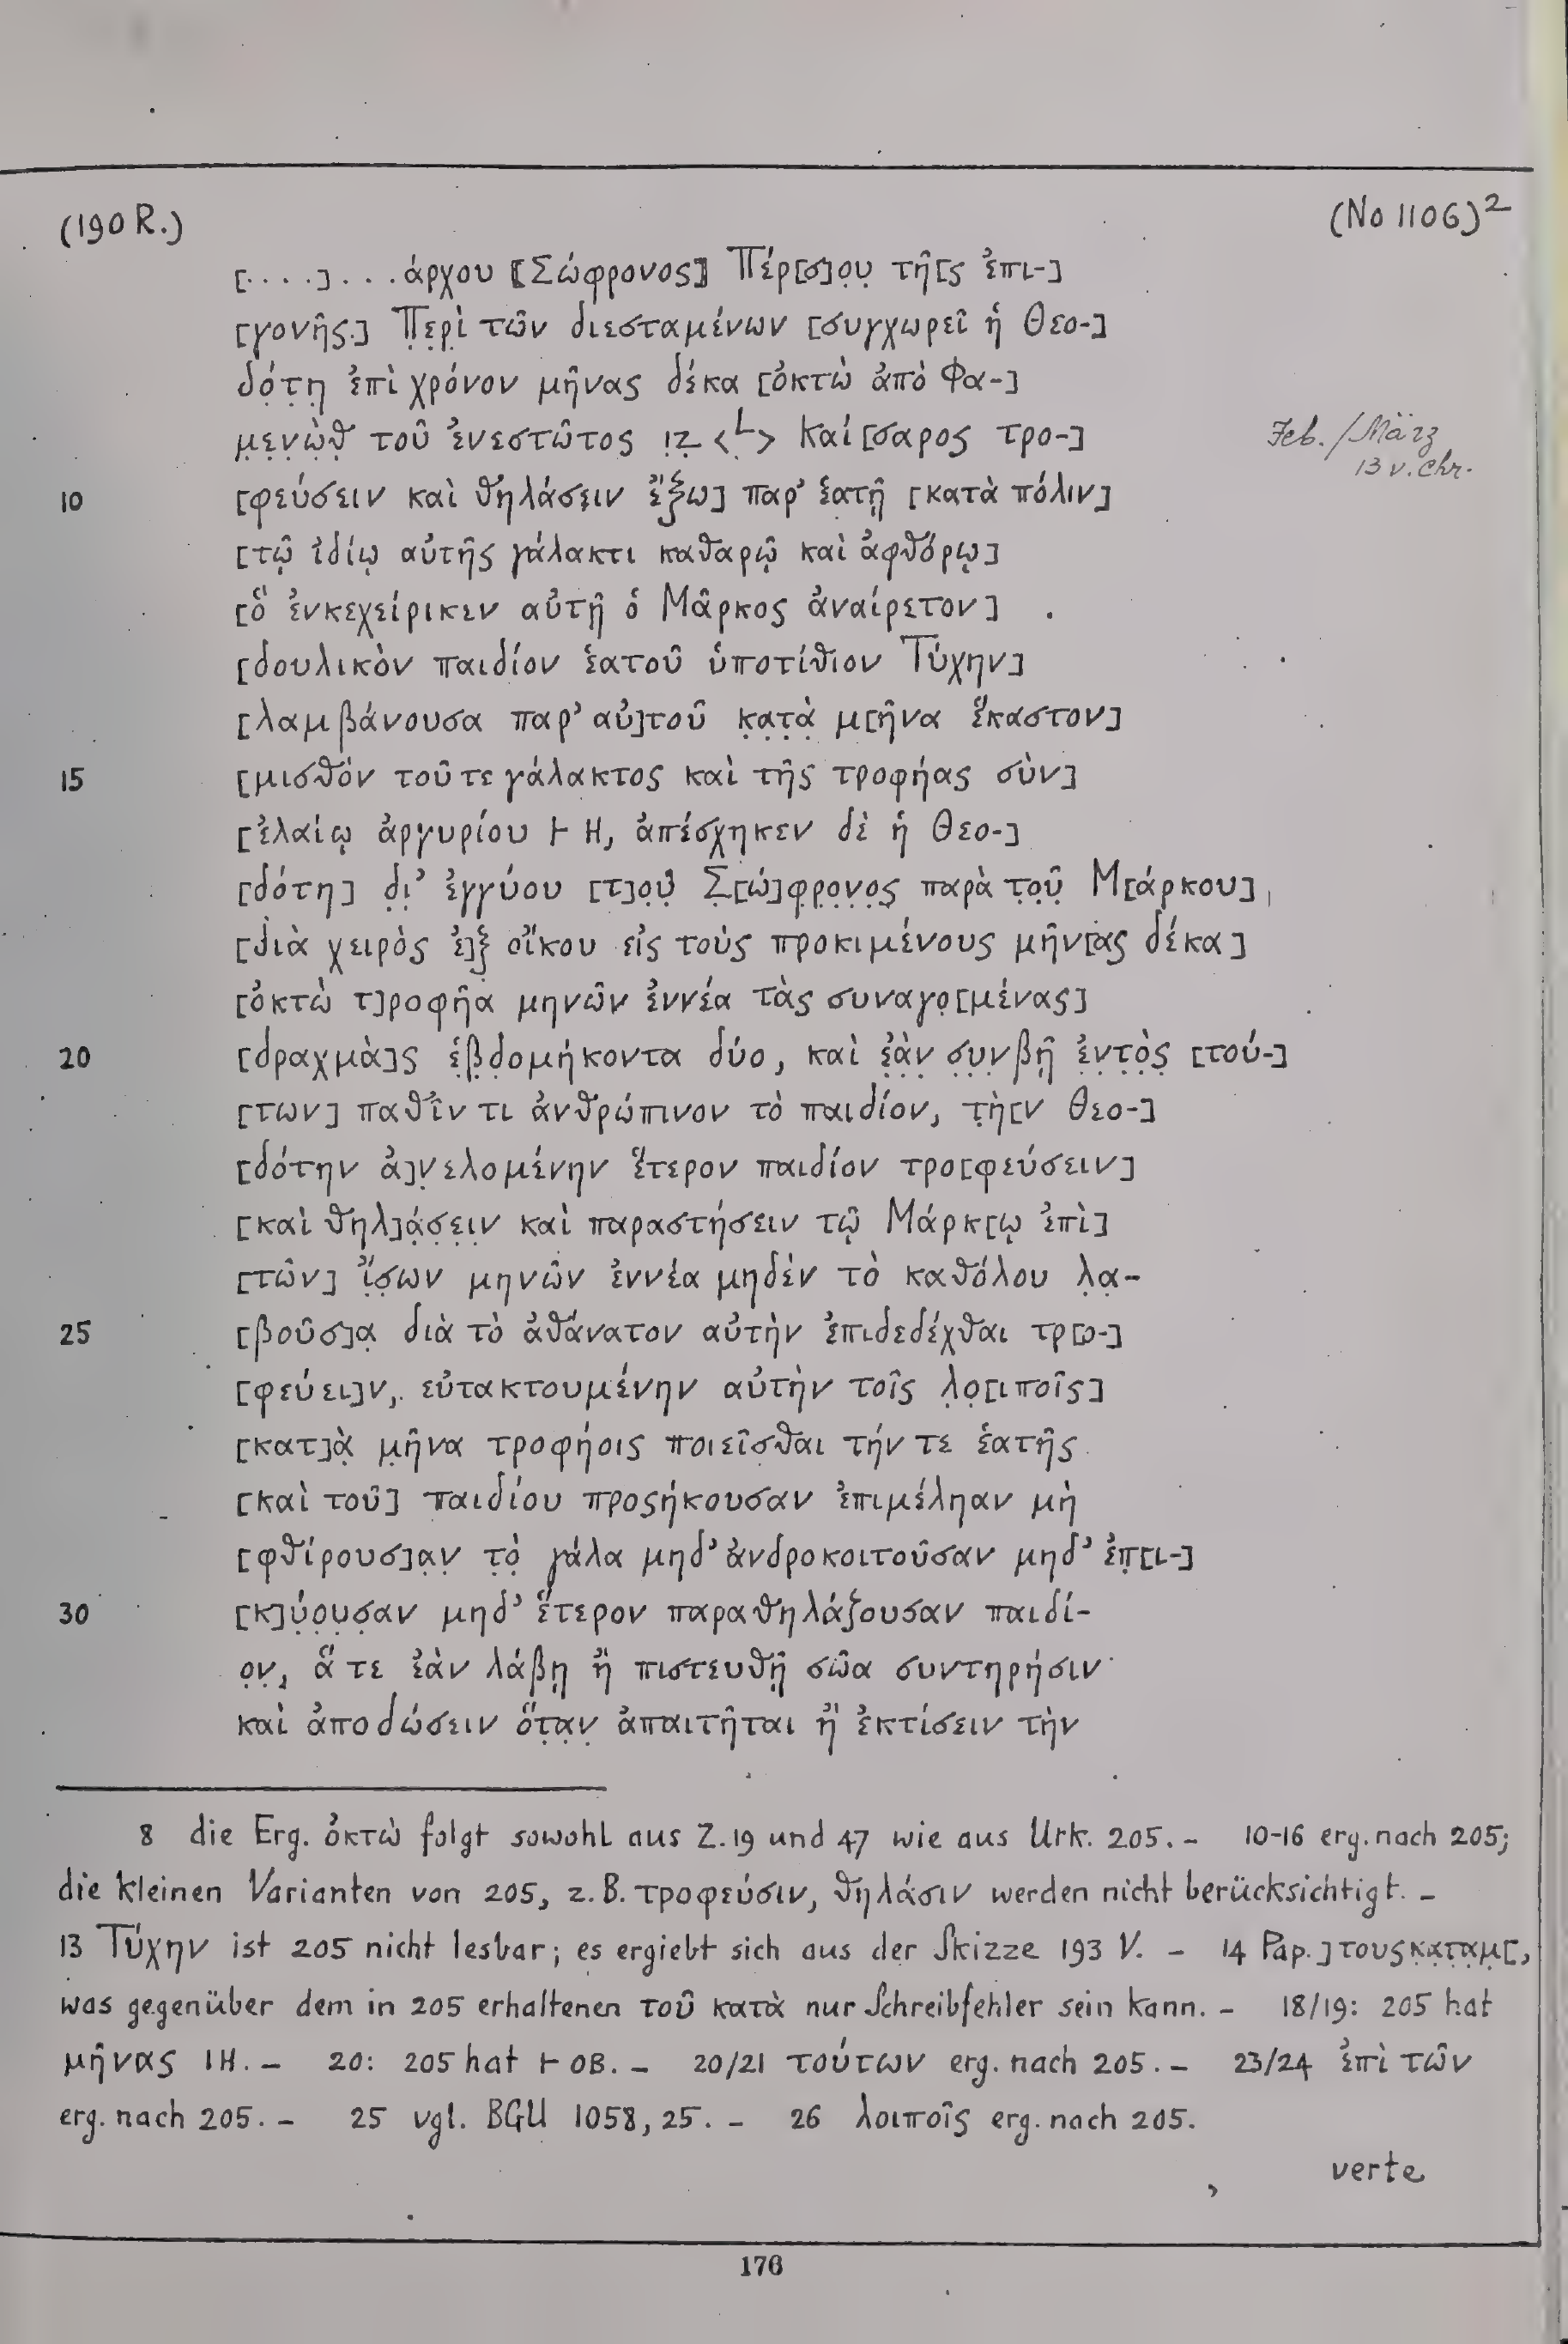 (190 R.) (No 1106)²
[....]...άρχου ⟦Σώφρονος⟧ Πέρ[σ]ου τῆ[ς ἐπι-]
[γονῆς.] Περὶ τῶν διεσταμένων [συγχωρεῖ ἡ Θεο-]
δότη ἐπὶ χρόνον μῆνας δέκα [ὀκτὼ ἀπὸ Φα-]
μενὼθ τοῦ ἐνεστῶτος ιζ <L> Καί[σαρος τρο-] Feb./März
13 v. Chr.
10 [φεύσειν καὶ θηλάσειν ἔξω] παρ' ἑατῇ [κατὰ πόλιν]
[τῷ ἰδίῳ αὐτῆς γάλακτι καθαρῷ καὶ ἀφθόρῳ]
[ὃ ἐνκεχείρικεν αὐτῇ ὁ Μᾶρκος ἀναίρετον]
[δουλικὸν παιδίον ἑατοῦ ὑποτίθιον Τύχην]
[λαμβάνουσα παρ' αὐ]τοῦ κατὰ μ[ῆνα ἕκαστον]
15 [μισθὸν τοῦ τε γάλακτος καὶ τῆς τροφήας σὺν]
[ἐλαίῳ ἀργυρίου ⊢ Η, ἀπέσχηκεν δὲ ἡ Θεο-]
[δότη] δι' ἐγγύου [τ]οῦ Σ[ώ]φρονος παρὰ τοῦ Μ[άρκου]
[διὰ χειρὸς ἐ]ξ οἴκου εἰς τοὺς προκιμένους μῆν[ας δέκα]
[ὀκτὼ τ]ροφῆα μηνῶν ἐννέα τὰς συναγο[μένας]
20 [δραχμὰ]ς ἑβδομήκοντα δύο, καὶ ἐὰν συνβῇ ἐντὸς [τού-]
[των] παθῖν τι ἀνθρώπινον τὸ παιδίον, τὴ[ν Θεο-]
[δότην ἀ]νελομένην ἕτερον παιδίον τρο[φεύσειν]
[καὶ θηλ]άσειν καὶ παραστήσειν τῷ Μάρκ[ῳ ἐπὶ]
[τῶν] ἴσων μηνῶν ἐννέα μηδὲν τὸ καθόλου λα-
25 [βοῦσ]α διὰ τὸ ἀθάνατον αὐτὴν ἐπιδεδέχθαι τρ[ο-]
[φεύει]ν, εὐτακτουμένην αὐτὴν τοῖς λο[ιποῖς]
[κατ]ὰ μῆνα τροφήοις ποιεῖσθαι τήν τε ἑατῆς
[καὶ τοῦ] παιδίου προςήκουσαν ἐπιμέληαν μὴ
[φθίρουσ]αν τὸ γάλα μηδ' ἀνδροκοιτοῦσαν μηδ' ἐπ[ι-]
30 [κ]ύουσαν μηδ' ἕτερον παραθηλάζουσαν παιδί-
ον, ἅ τε ἐὰν λάβῃ ἢ πιστευθῇ σῶα συντηρήσιν
καὶ ἀποδώσειν ὅταν ἀπαιτῆται ἢ ἐκτίσειν τὴν
8 die Erg. ὀκτὼ folgt sowohl aus Z. 19 und 47 wie aus Urk. 205. – 10-16 erg. nach 205;
die kleinen Varianten von 205, z. B. τροφεύσιν, θηλάσιν werden nicht berücksichtigt. –
13 Τύχην ist 205 nicht lesbar; es ergiebt sich aus der Skizze 193 V. – 14 Pap. ]τουςκαταμ[,
was gegenüber dem in 205 erhaltenen τοῦ κατὰ nur Schreibfehler sein kann. – 18/19: 205 hat
μῆνας ΙΗ. – 20: 205 hat ⊢ ΟΒ. – 20/21 τούτων erg. nach 205. – 23/24 ἐπὶ τῶν
erg. nach 205. – 25 vgl. BGU 1058, 25. – 26 λοιποῖς erg. nach 205.
verte
176